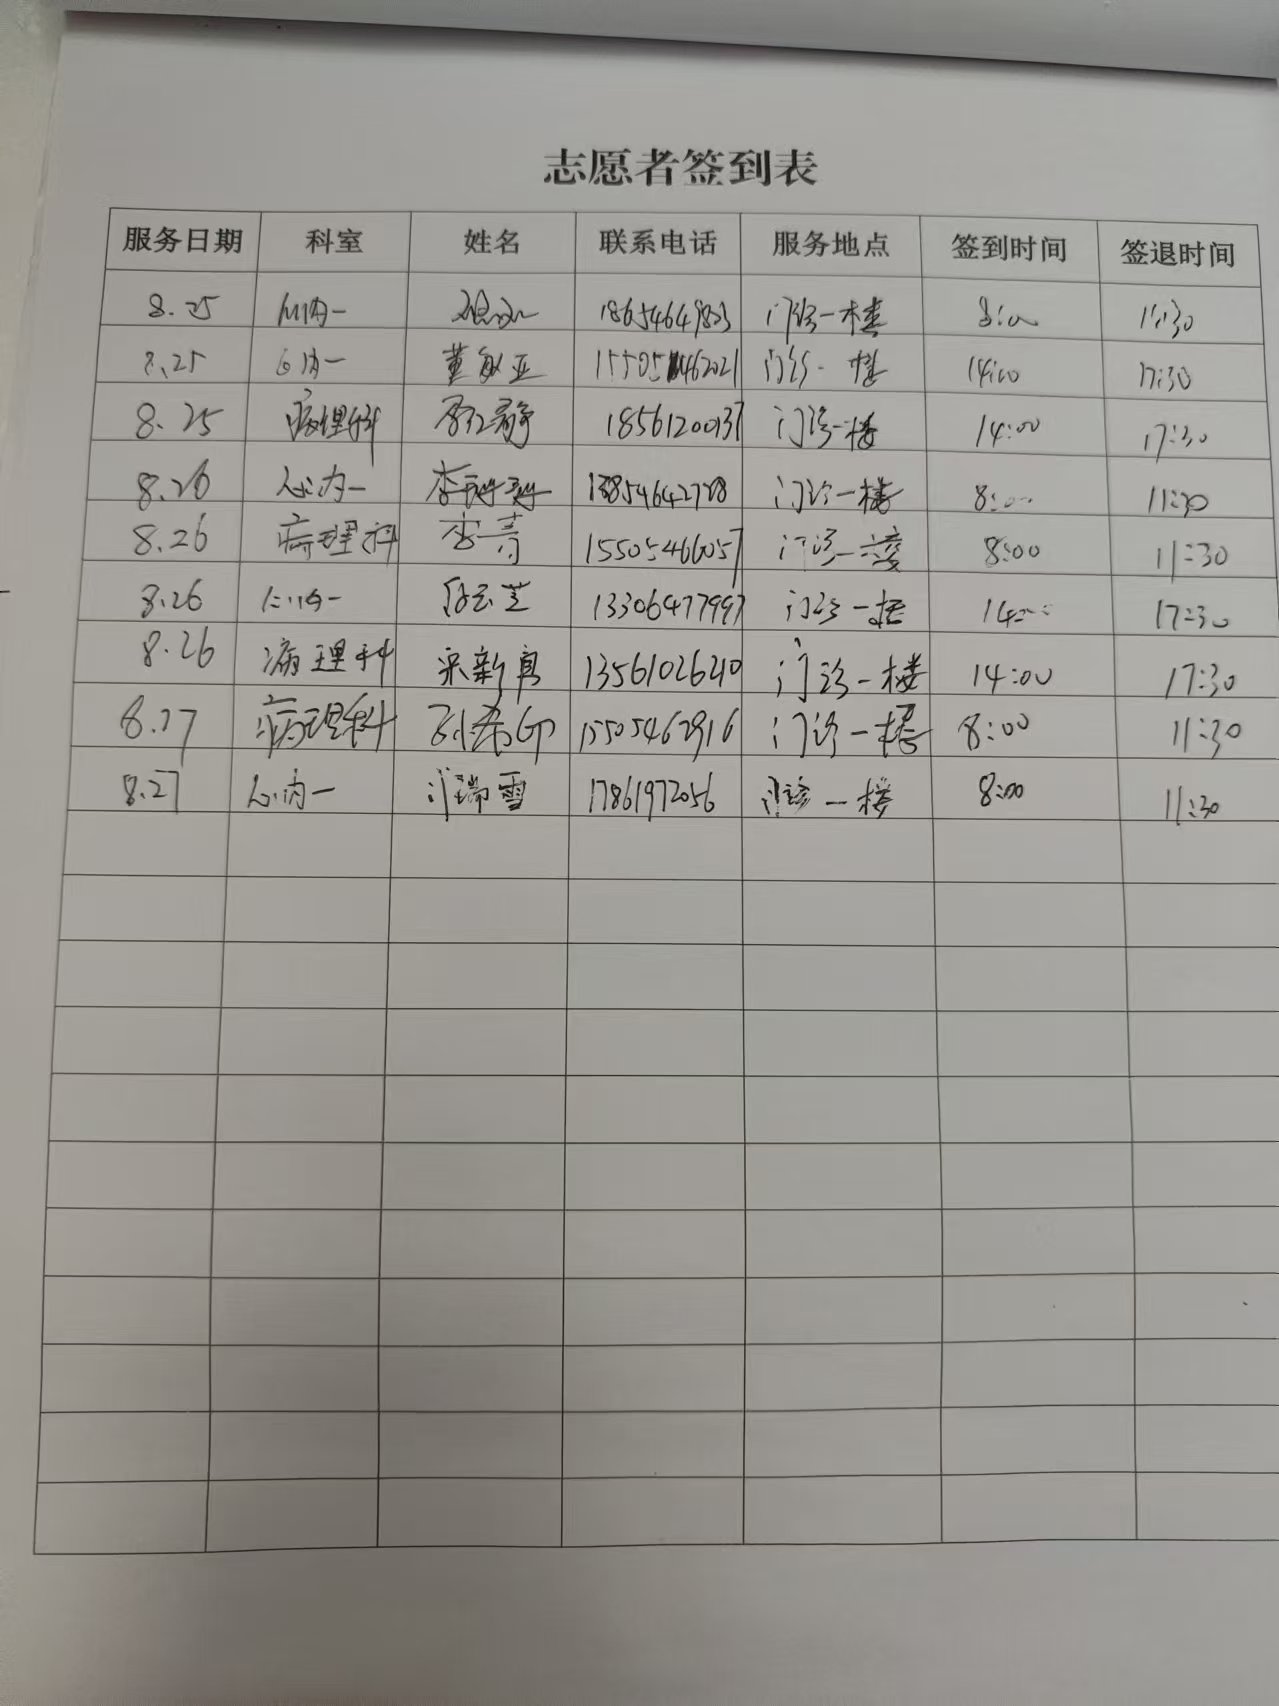 志愿者签到表
服务日期 科室 姓名 联系电话 服务地点 签到时间 签退时间
8.25 心内一 18654649823 门诊一楼 8:00 11:30
8.25 心内一 董敏亚 门诊一楼 14:00 17:30
8.25 病理科 18561200137 门诊一楼 14:00 17:30
8.26 心内一 李珊珊 13854642728 门诊一楼 8:00 11:30
8.26 病理科 李青 15505466057 门诊一楼 8:00 11:30
8.26 心内一 13306477997 门诊一楼 14:00 17:30
8.26 病理科 宋新 13561026210 门诊一楼 14:00 17:30
8.27 病理科 15505462916 门诊一楼 8:00 11:30
8.27 心内一 瑞雪 17861972056 门诊一楼 8:00 11:30